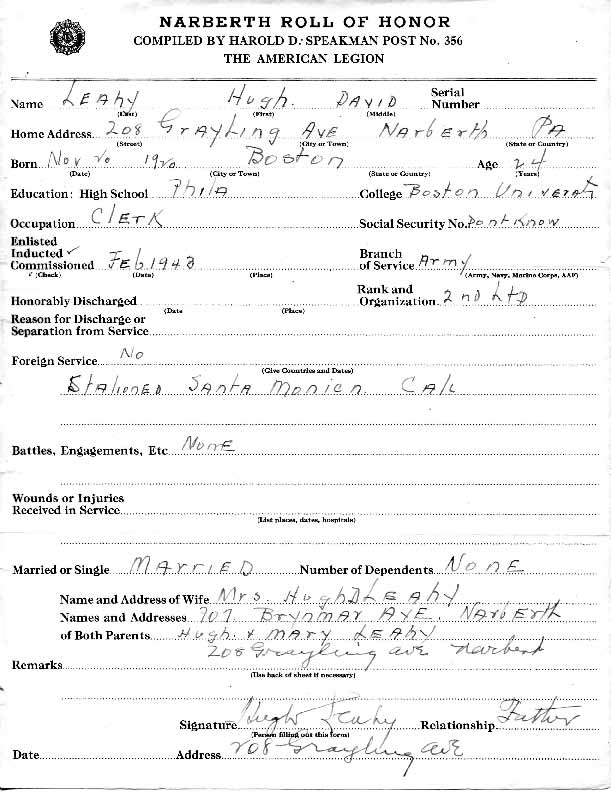 NARBERTH ROLL OF HONOR
COMPILED BY HAROLD D. SPEAKMAN POST No. 356
THE AMERICAN LEGION
Name LEAHY Hugh. DAVID Serial Number
(Last) (First) (Middle)
Home Address 208 GRAYLING AVE NARBERTH PA
(Street) (City or Town) (State or Country)
Born Nov 20 1920 BOSTON Age 24
(Date) (City or Town) (State or Country) (Years)
Education: High School PhilA College BOSTON
Occupation ClERK Social Security No. Dont Know
Enlisted
Inducted ✓
Commissioned FEb. 1943 Branch of Service Army
✓ (Check) (Date) (Place) (Army, Navy, Marine Corps, AAF)
Honorably Discharged Rank and Organization 2nd LtD
(Date (Place)
Reason for Discharge or
Separation from Service
Foreign Service No
(Give Countries and Dates)
StAtionED SANTA MONICA CAL
Battles, Engagements, Etc NonE
Wounds or Injuries
Received in Service
(List places, dates, hospitals)
Married or Single MARRIED Number of Dependents NonE
Name and Address of Wife Mrs. Hugh D LEAHY
Names and Addresses 707 BRYNMAR AVE. NARBERTH
of Both Parents Hugh. & MARY LEAHY
208 Grayling ave Narberth
Remarks
(Use back of sheet if necessary)
Signature Hugh Leahy Relationship Father
(Person filling out this form)
Date Address 208 Grayling avE